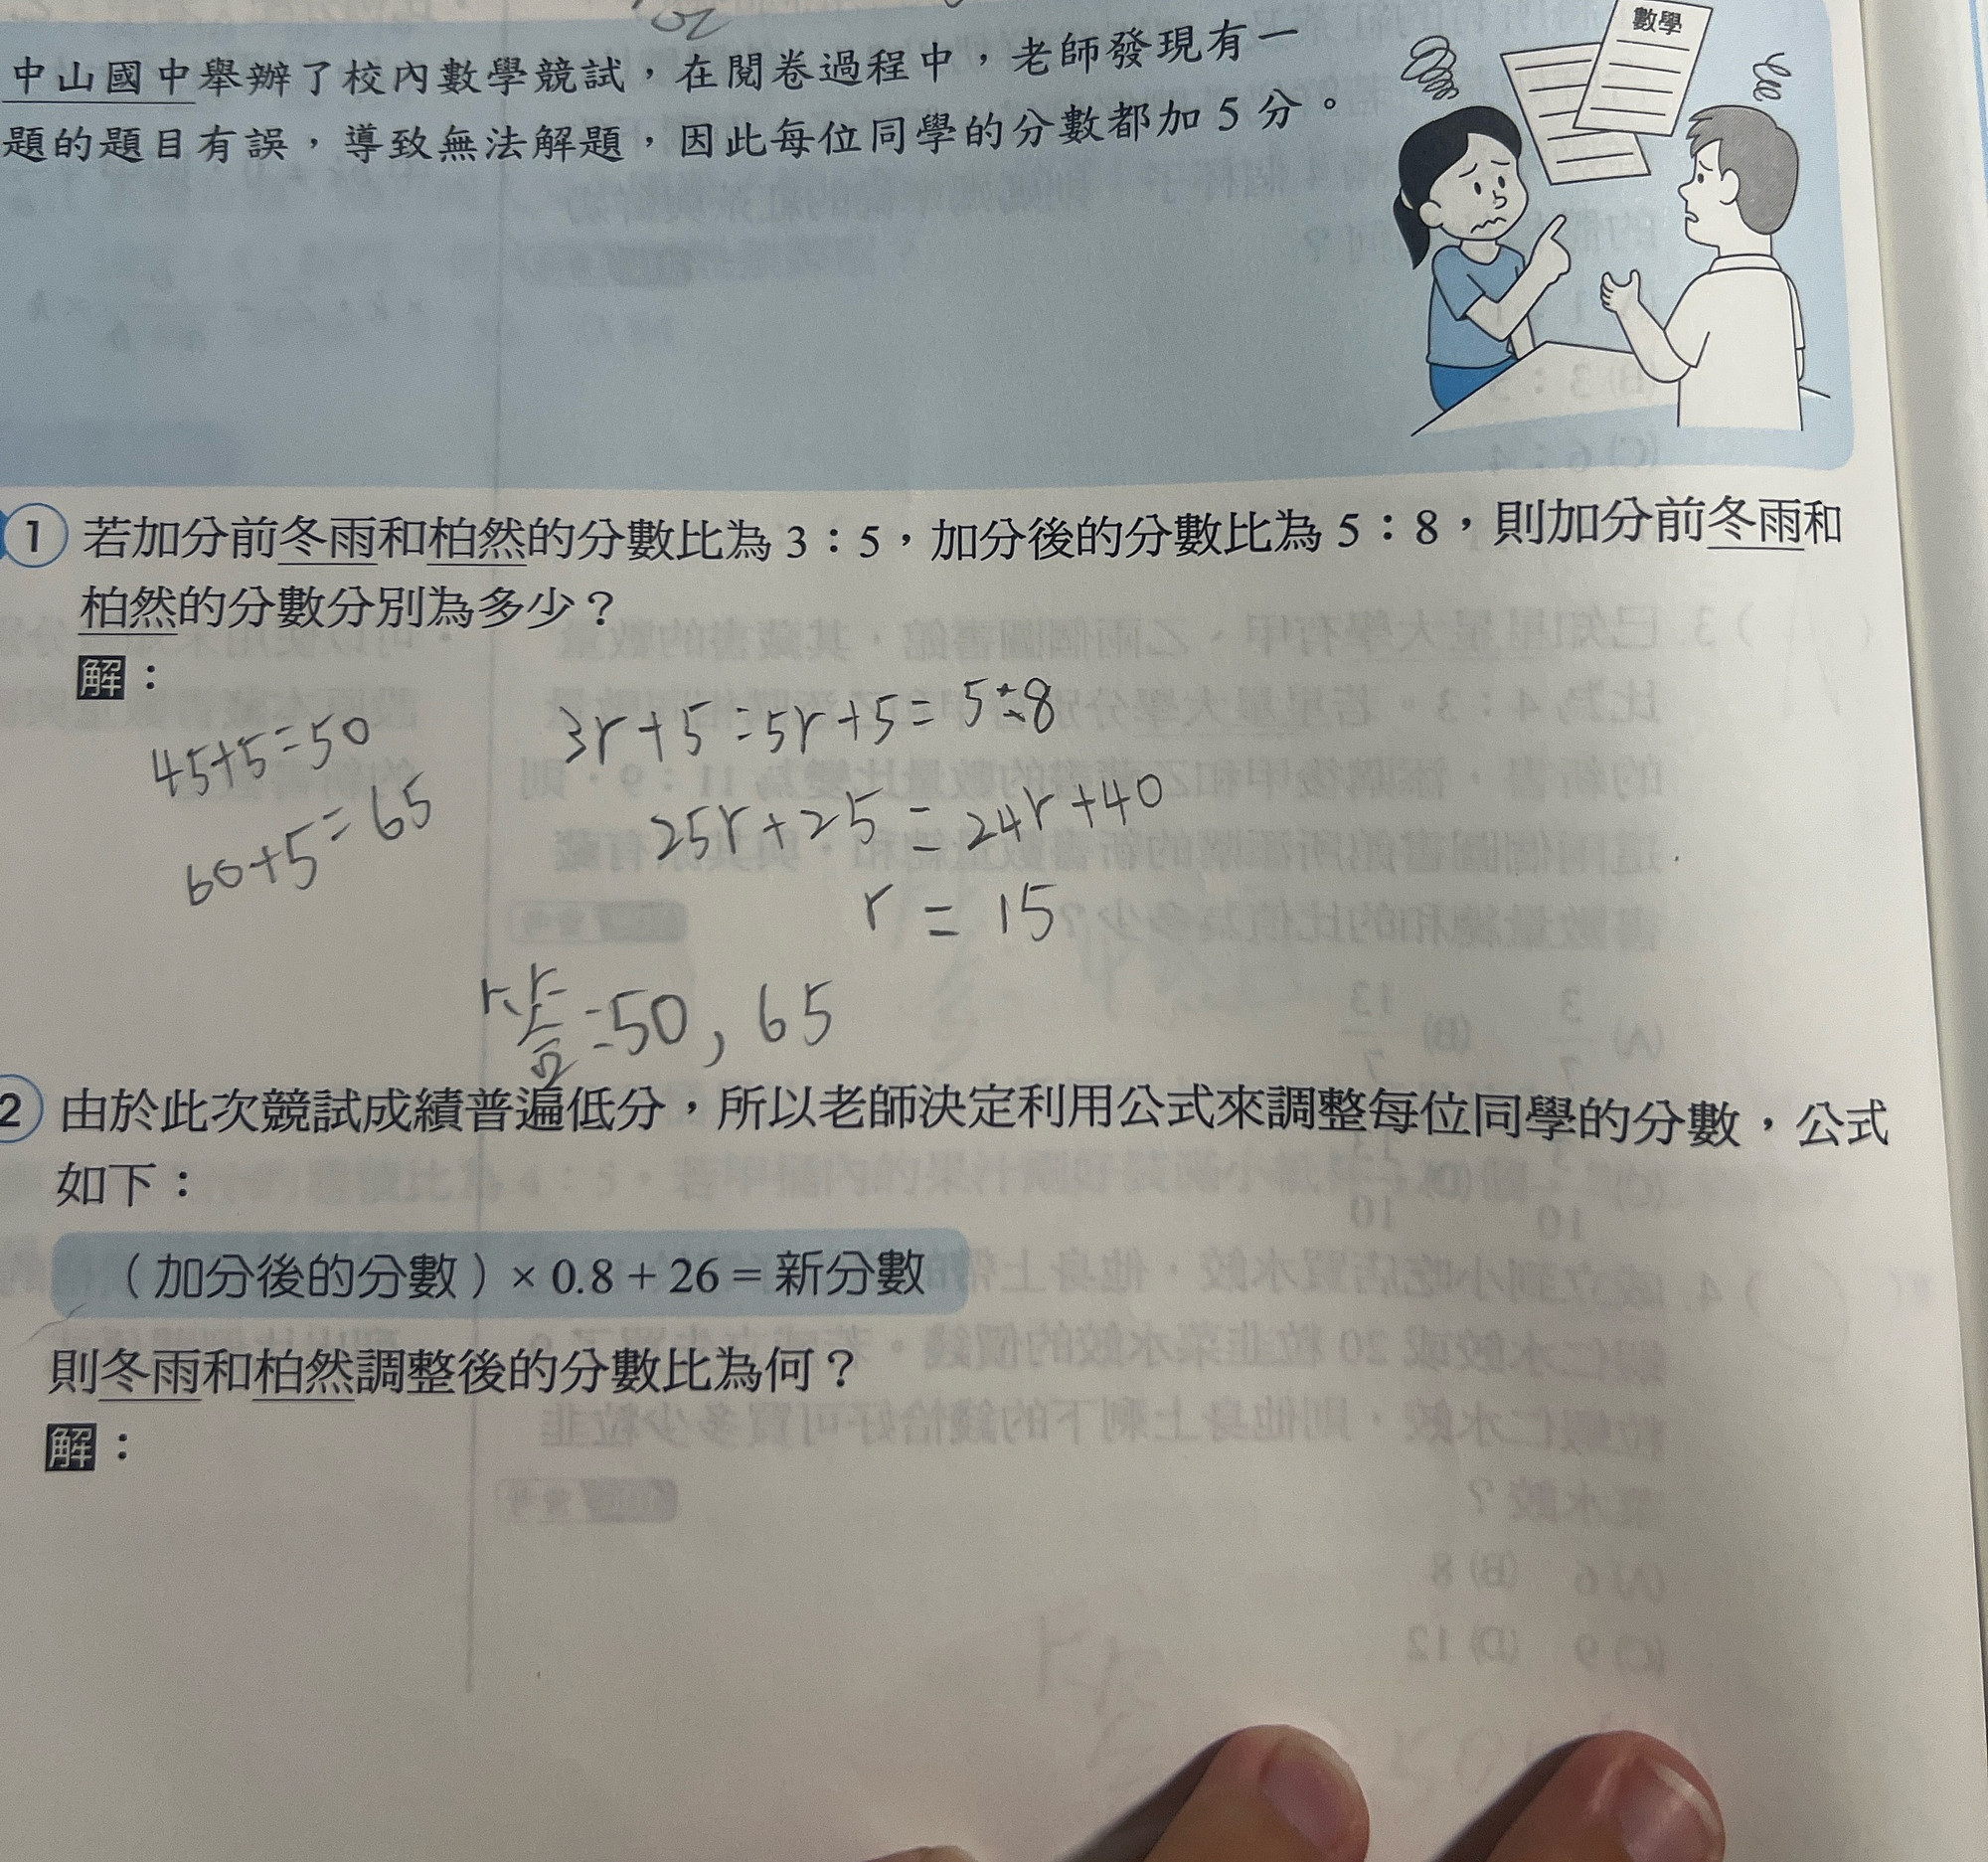 數學
中山國中舉辦了校內數學競試，在閱卷過程中，老師發現有一
題的題目有誤，導致無法解題，因此每位同學的分數都加 5 分。
1 若加分前冬雨和柏然的分數比為 3：5，加分後的分數比為 5：8，則加分前冬雨和
柏然的分數分別為多少？
解：
45+5=50
60+5=65
3r+5:5r+5=5:8
25r+25=24r+40
r=15
答:50,65
2 由於此次競試成績普遍低分，所以老師決定利用公式來調整每位同學的分數，公式
如下：
（加分後的分數）×0.8＋26＝新分數
則冬雨和柏然調整後的分數比為何？
解：